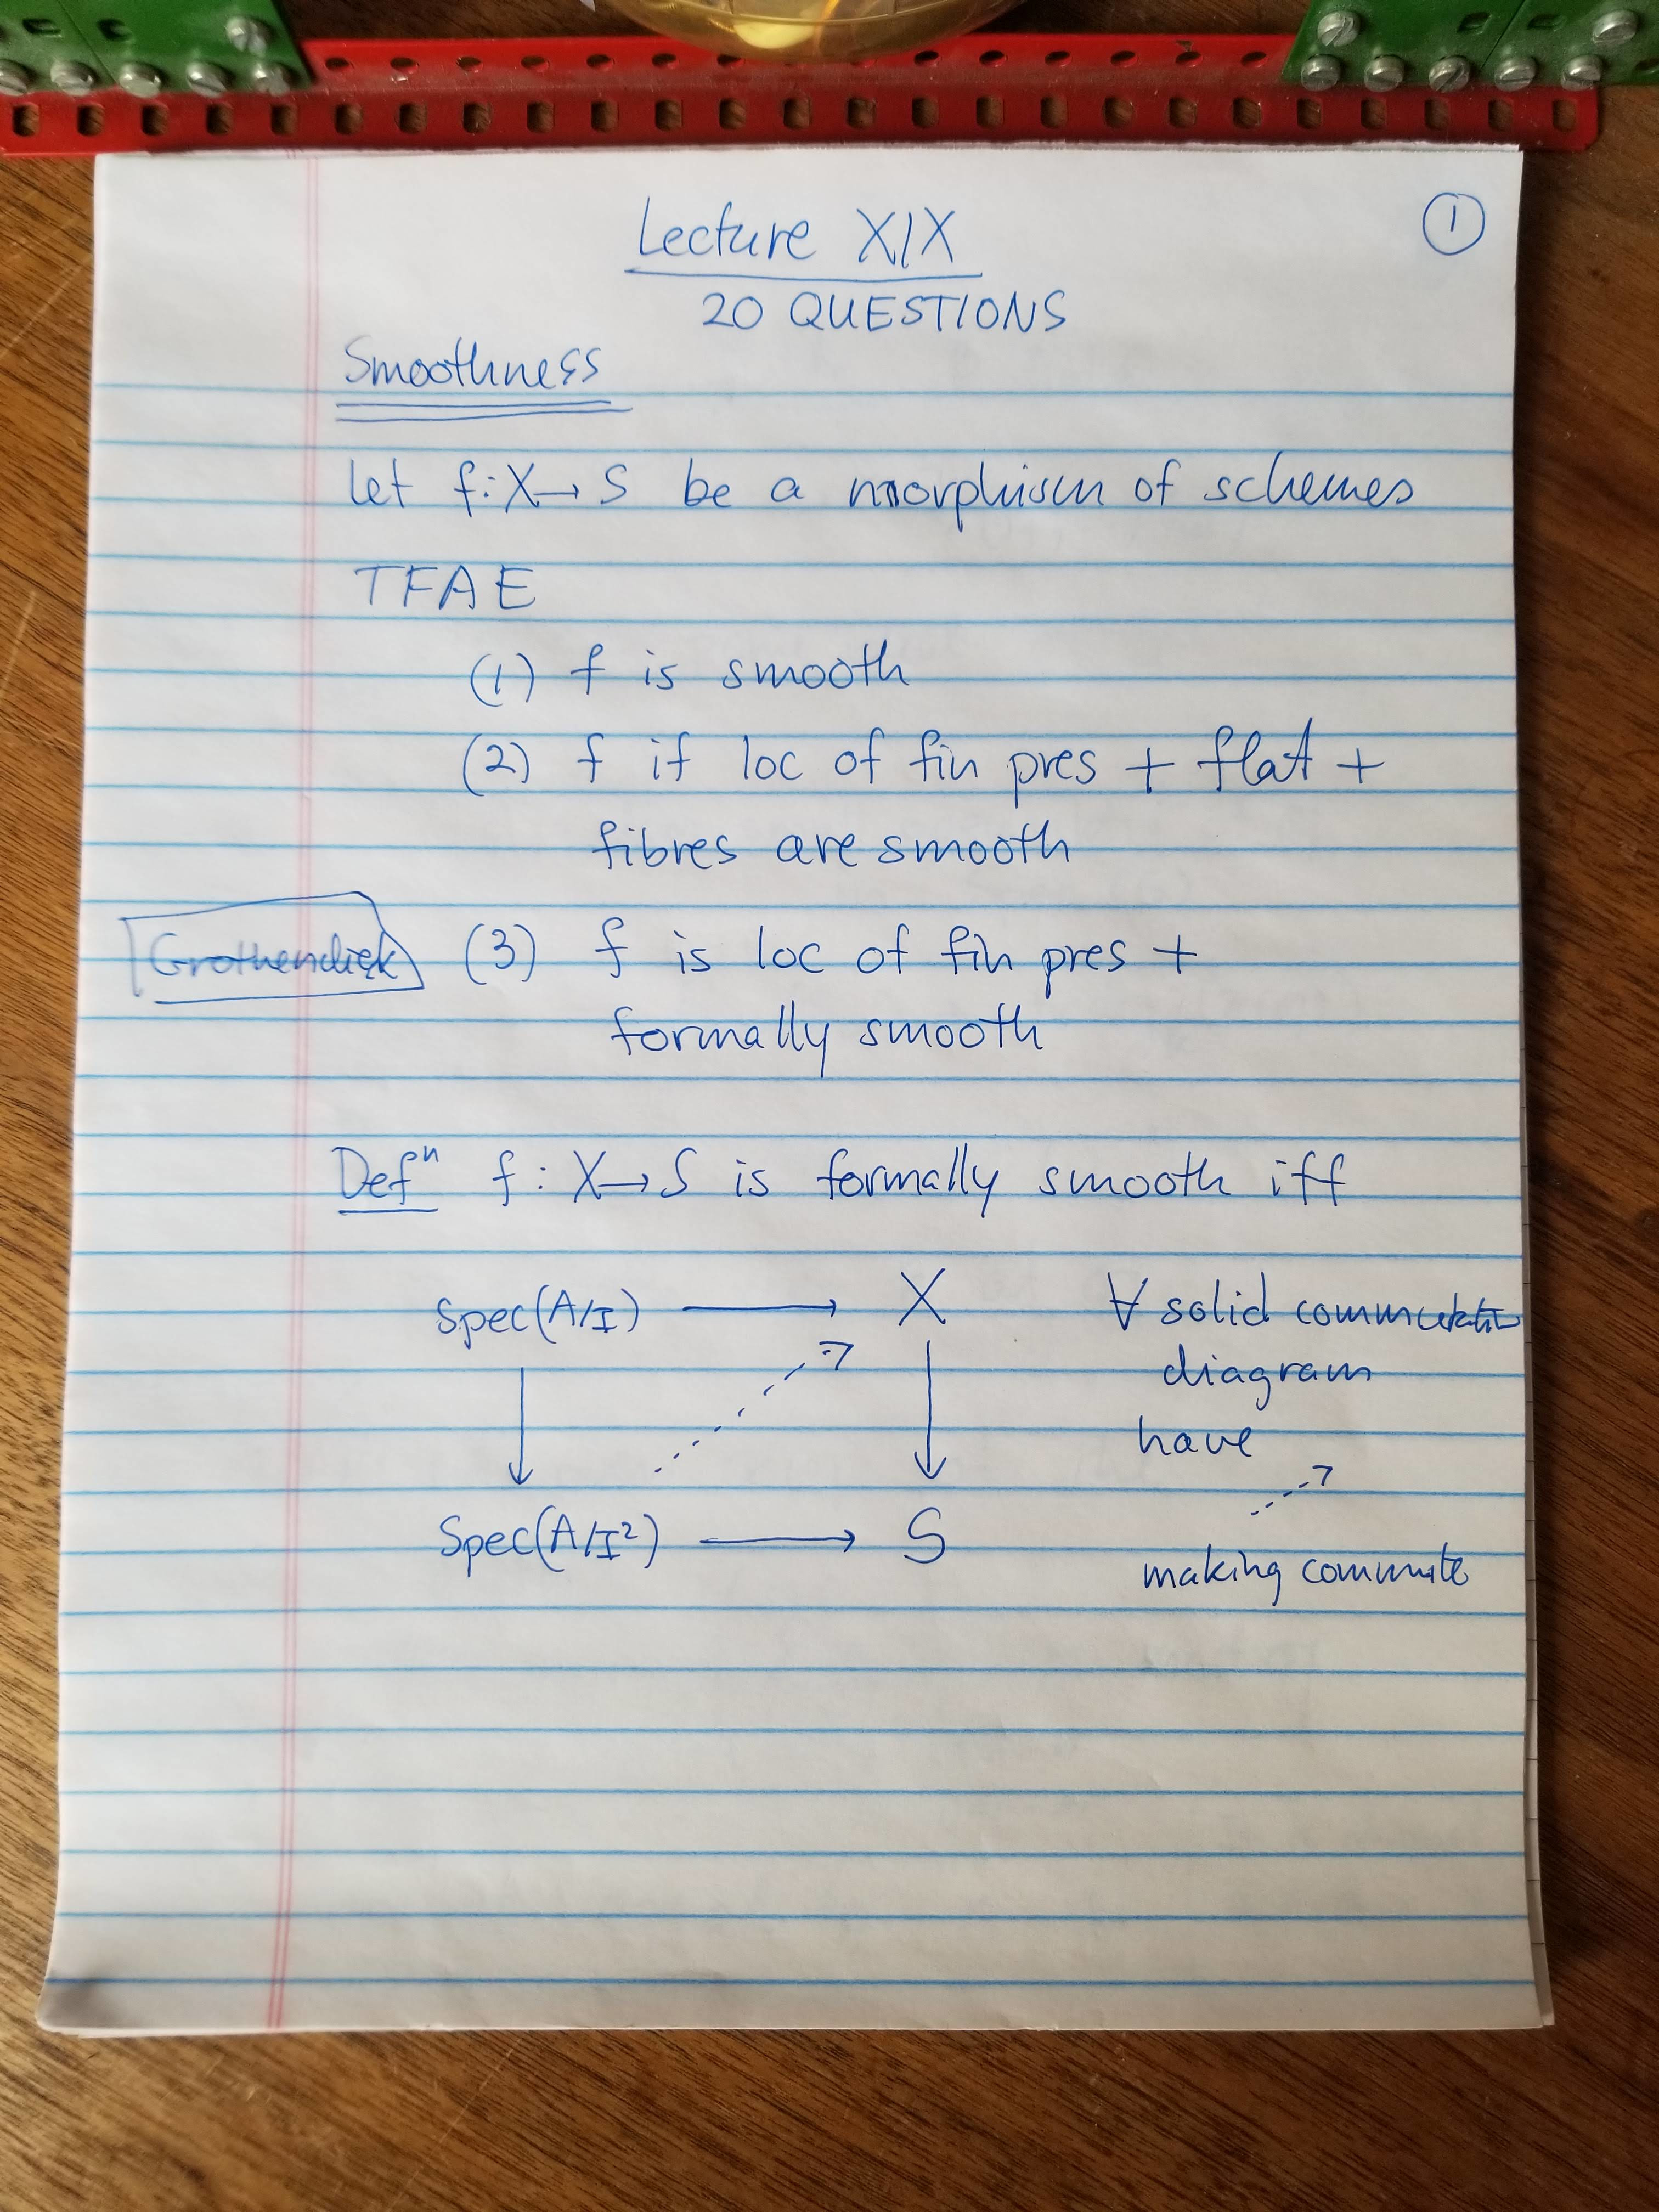 Lecture XIX
①
20 QUESTIONS
Smoothness
Let f: X → S be a morphism of schemes
TFAE
(1) f is smooth
(2) f if loc of fin pres + flat +
fibres are smooth
Grothendieck (3) f is loc of fin pres +
formally smooth
Defⁿ f: X → S is formally smooth iff
Spec(A/I) → X ∀ solid commutative
diagram
have
Spec(A/I²) → S
making commute